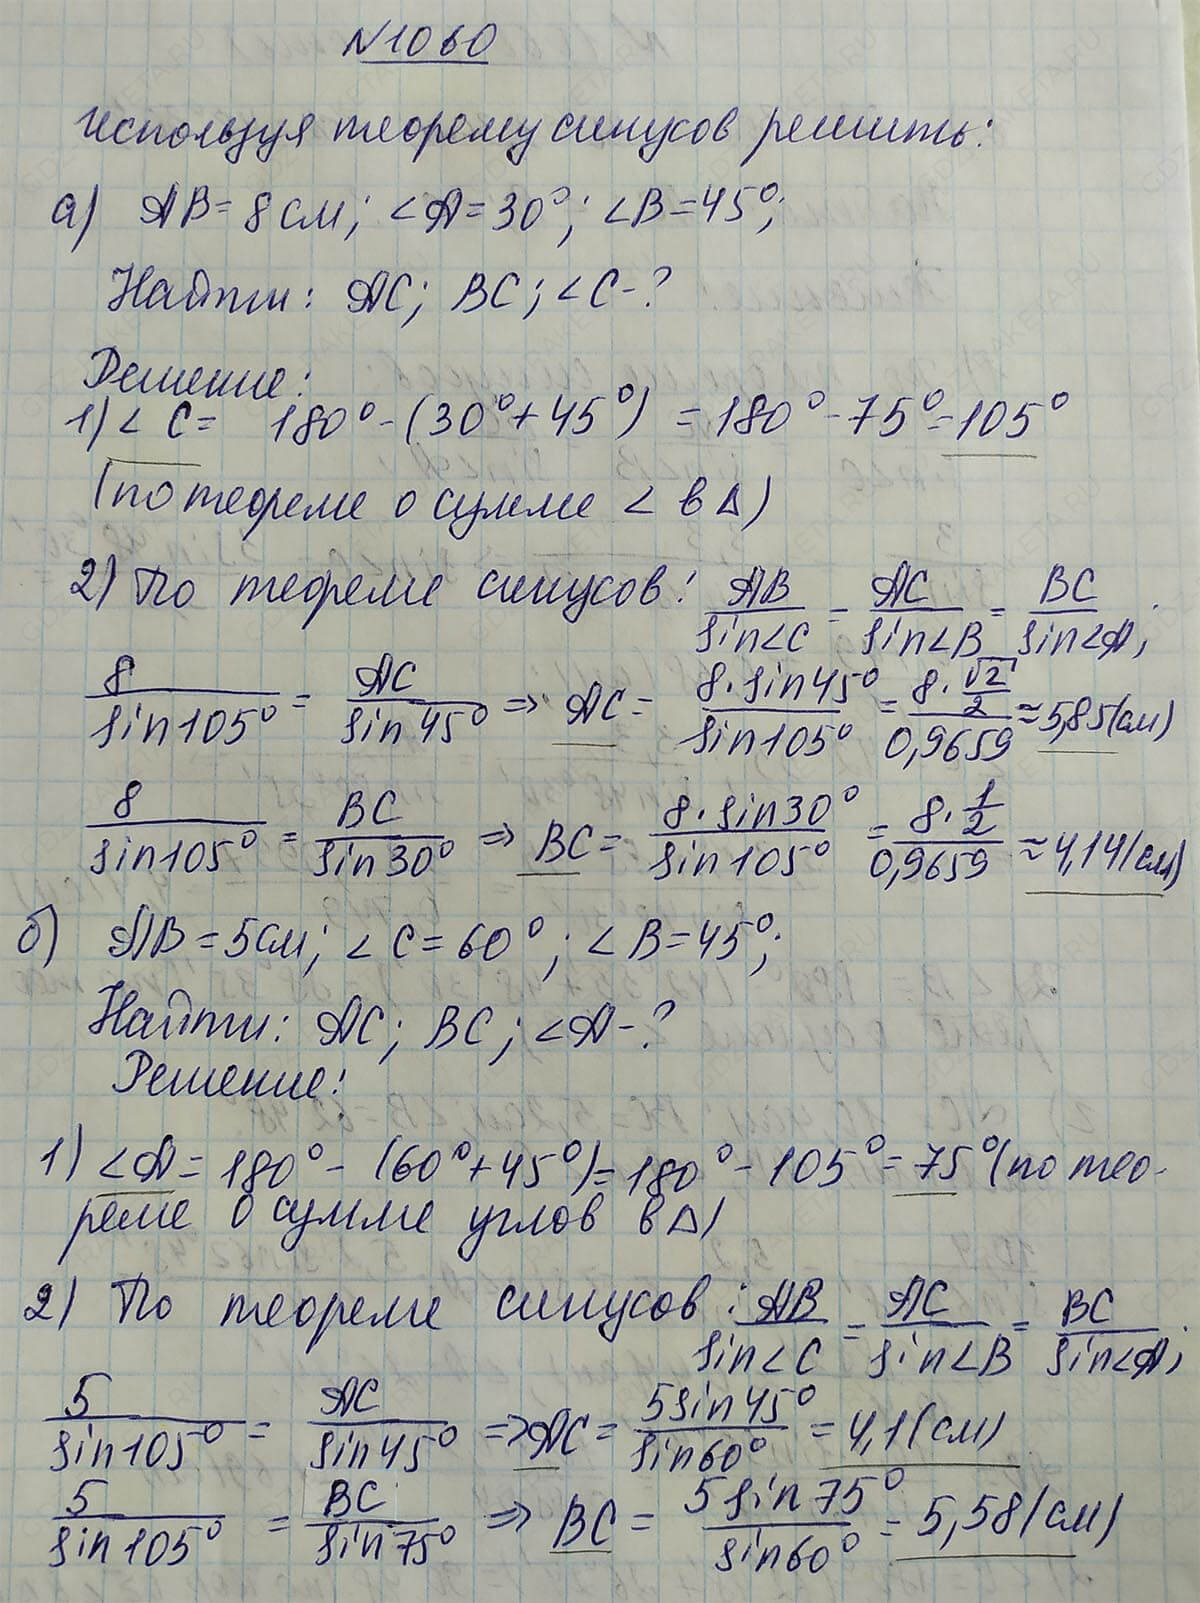 N1060
Используя теорему синусов решить:
а) AB = 8 см; ∠A = 30°; ∠B = 45°;
Найти: AC; BC; ∠C - ?
Решение:
1) ∠C = 180° - (30° + 45°) = 180° - 75° = 105°
(по теореме о сумме ∠ в Δ)
2) По теореме синусов: AB/sin∠C = AC/sin∠B = BC/sin∠A;
8/sin105° = AC/sin45° => AC = 8·sin45°/sin105° = 8·√2/2/0,9659 ≈ 5,85 (см)
8/sin105° = BC/sin30° => BC = 8·sin30°/sin105° = 8·1/2/0,9659 ≈ 4,14 (см)
б) AB = 5 см; ∠C = 60°; ∠B = 45°;
Найти: AC; BC; ∠A - ?
Решение:
1) ∠A = 180° - (60° + 45°) = 180° - 105° = 75° (по тео-
реме о сумме углов в Δ)
2) По теореме синусов: AB/sin∠C = AC/sin∠B = BC/sin∠A;
5/sin105° = AC/sin45° => AC = 5sin45°/sin60° = 4,1 (см)
5/sin105° = BC/sin75° => BC = 5sin75°/sin60° = 5,58 (см)